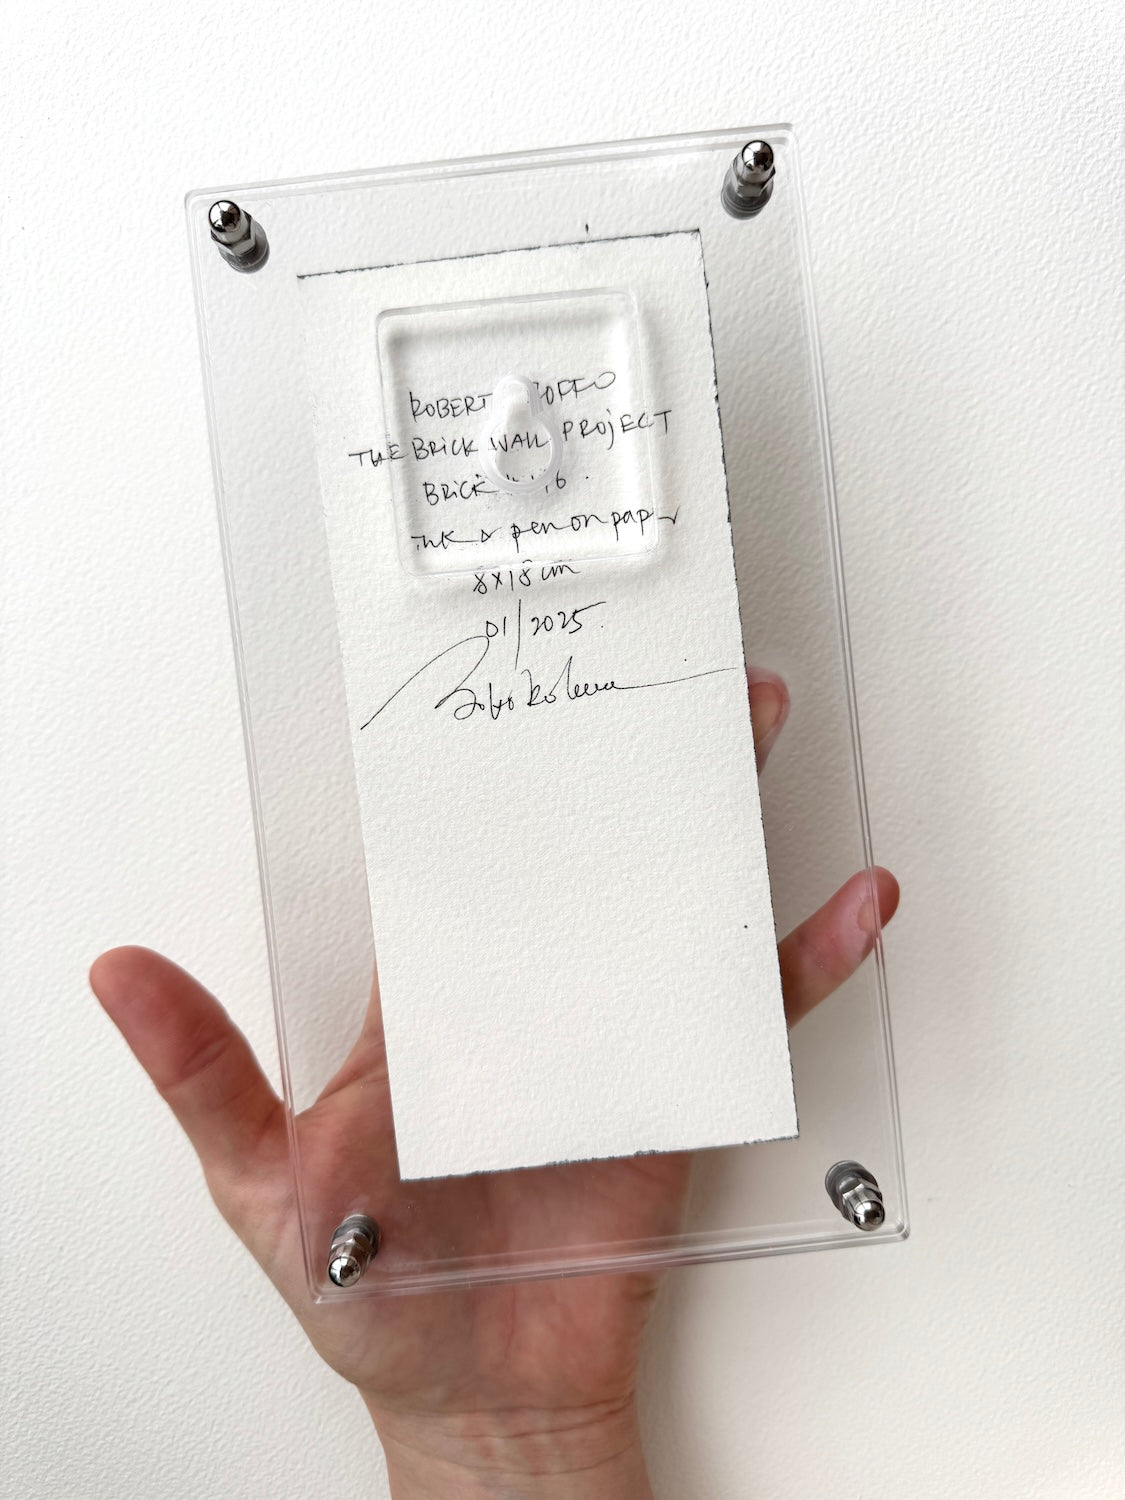 ROBERT
THE BRICK WALL PROJECT
BRICK
ink & pen on paper
8x18 cm
01/2025.